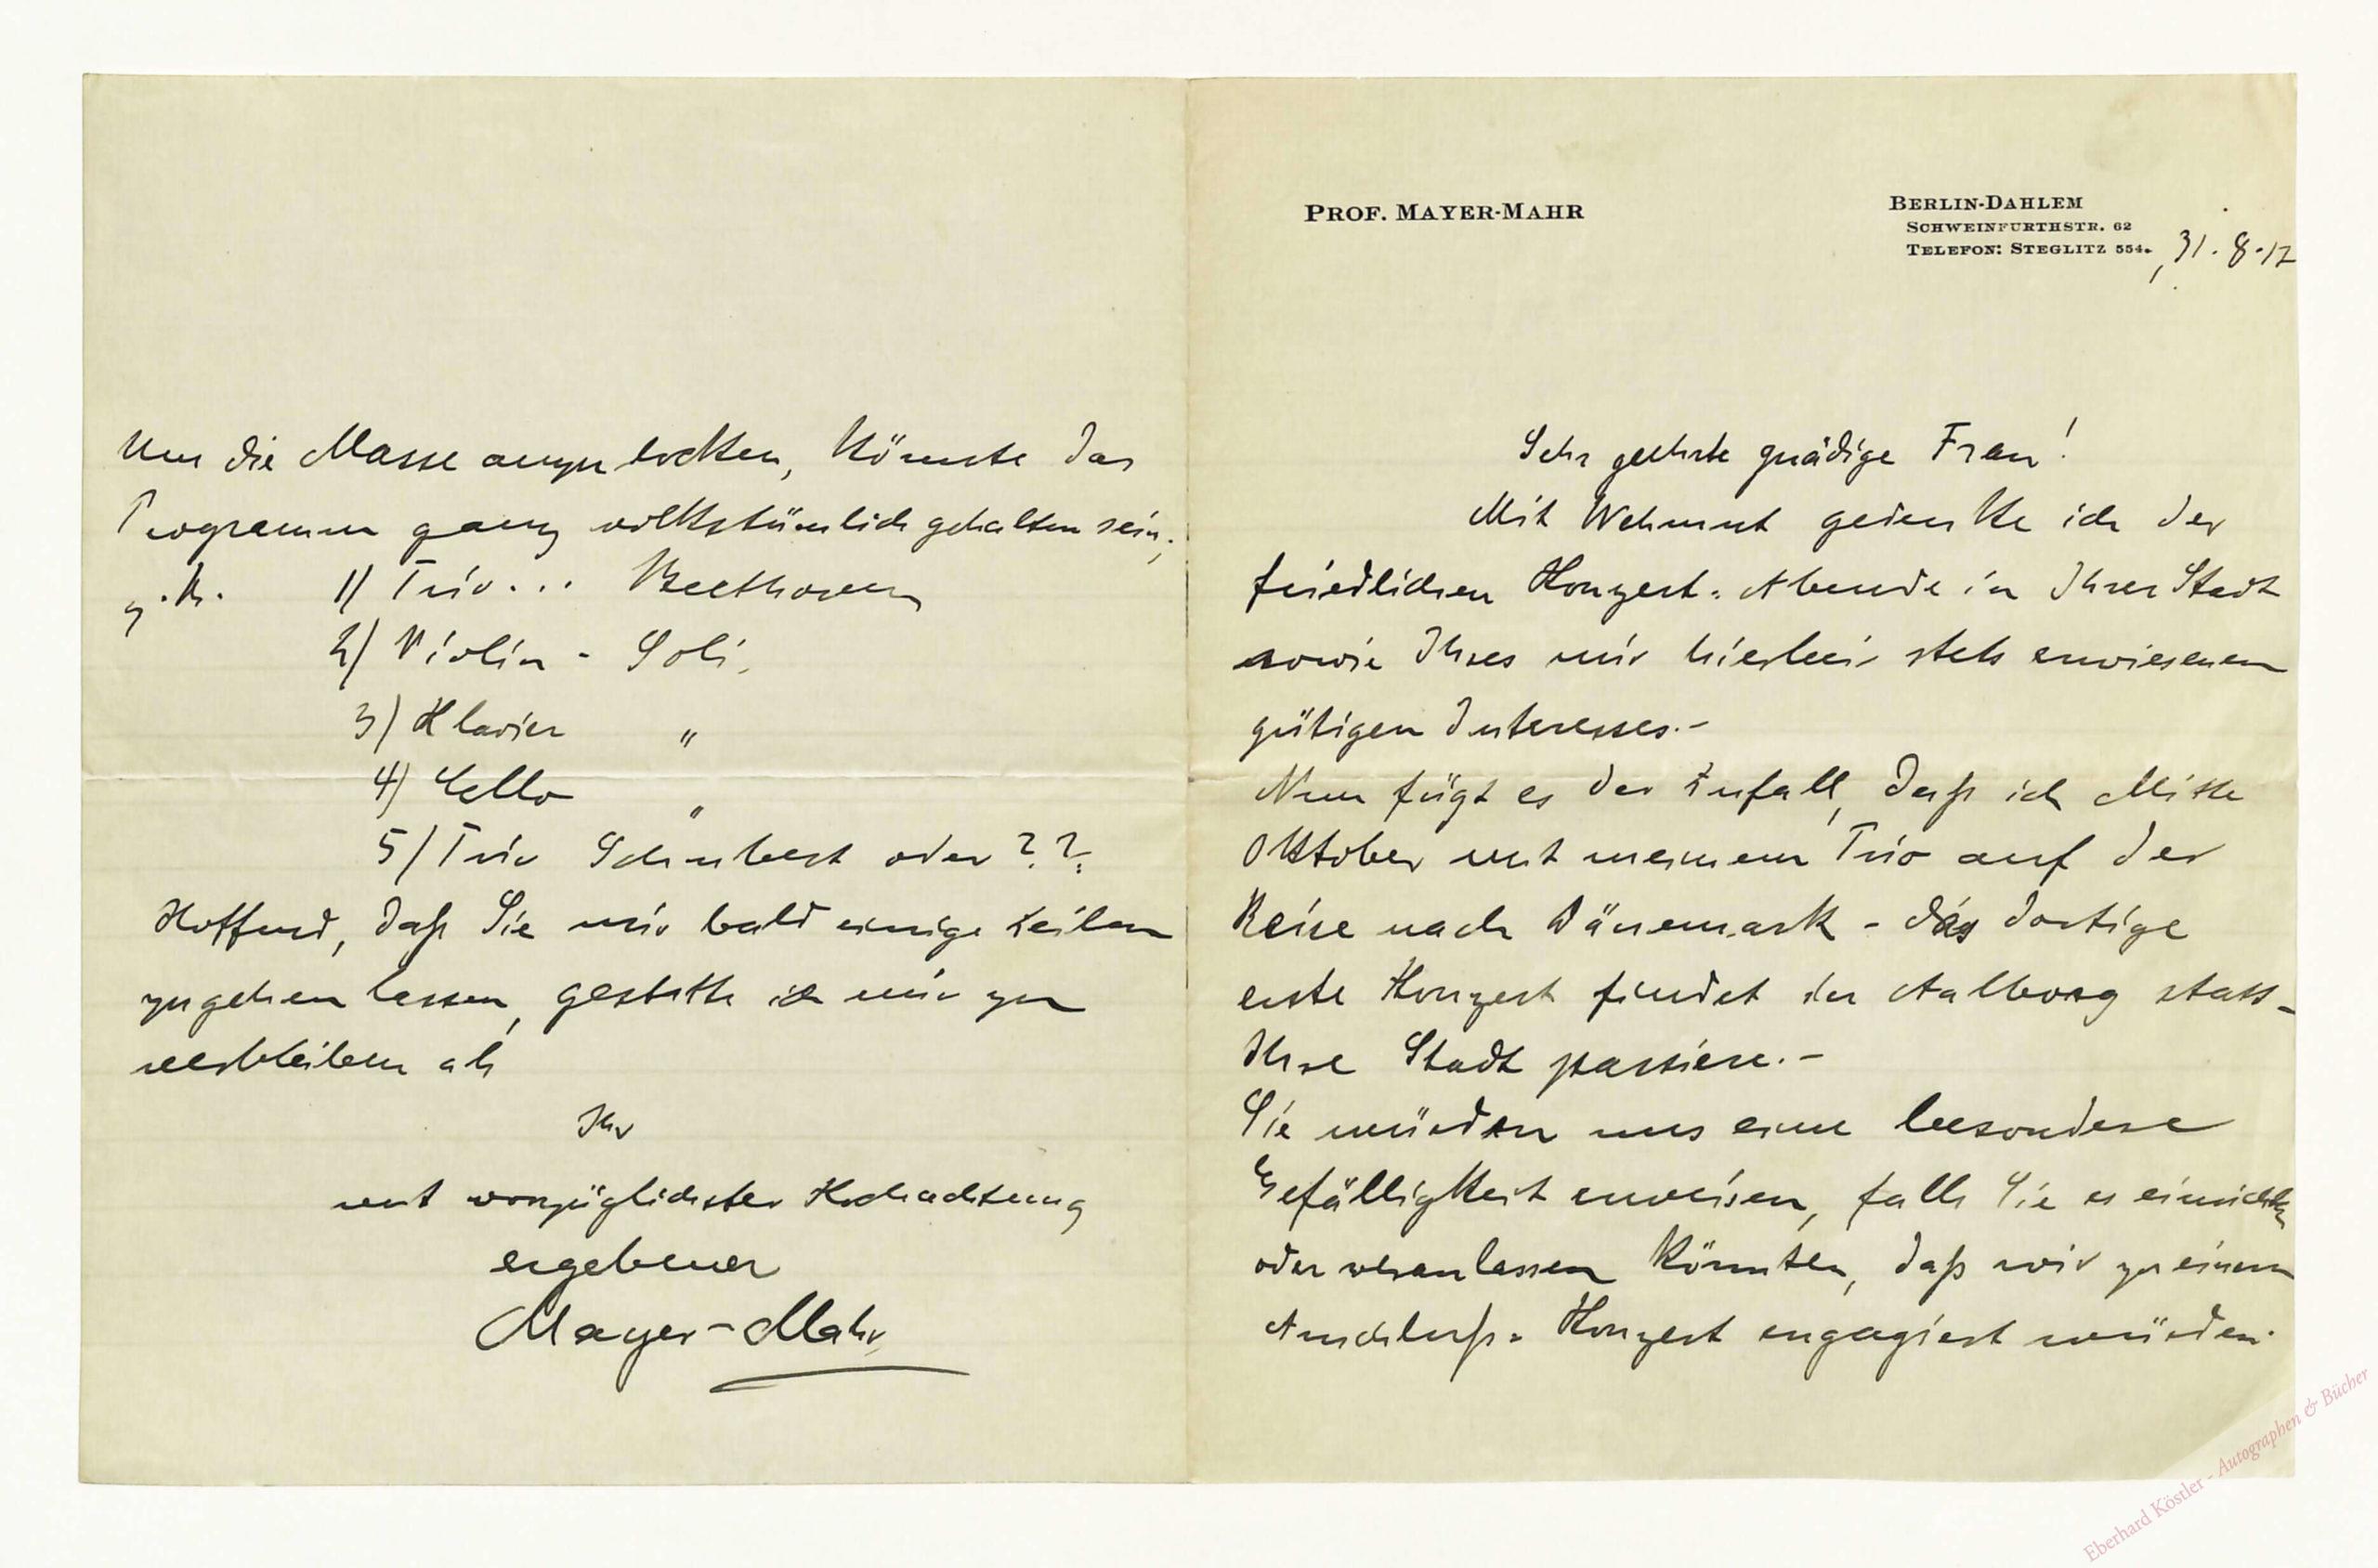 PROF. MAYER-MAHR
BERLIN-DAHLEM
SCHWEINFURTHSTR. 62
TELEFON: STEGLITZ 554.
, 31.8.17
Sehr geehrte gnädige Frau!
Mit Wehmut gedenke ich der
friedlichen Konzert-Abende in Ihrer Stadt
sowie Ihres mir hierbei stets erwiesenen
gütigen Interesses.-
Nun fügt es der Zufall, daß ich Mitte
Oktober mit meinem Trio auf der
Reise nach Dänemark - das dortige
erste Konzert findet in Aalborg statt -
Ihre Stadt passiere.-
Sie würden uns eine besondere
Gefälligkeit erweisen, falls Sie es einrichten
oder veranlassen könnten, daß wir zu einem
Anschluß-Konzert engagiert würden.
Um die Masse anzulocken, könnte das
Programm ganz volkstümlich gehalten sein;
z.B. 1) Trio... Beethoven
2) Violin - Soli,
3) Klavier "
4) Cello "
5) Trio Schubert oder ??
Hoffend, daß Sie mir bald einige Zeilen
zugehen lassen, gestatte ich mir zu
verbleiben als
Ihr
mit vorzüglichster Hochachtung
ergebener
Mayer-Mahr
Eberhard Köstler - Autographen & Bücher